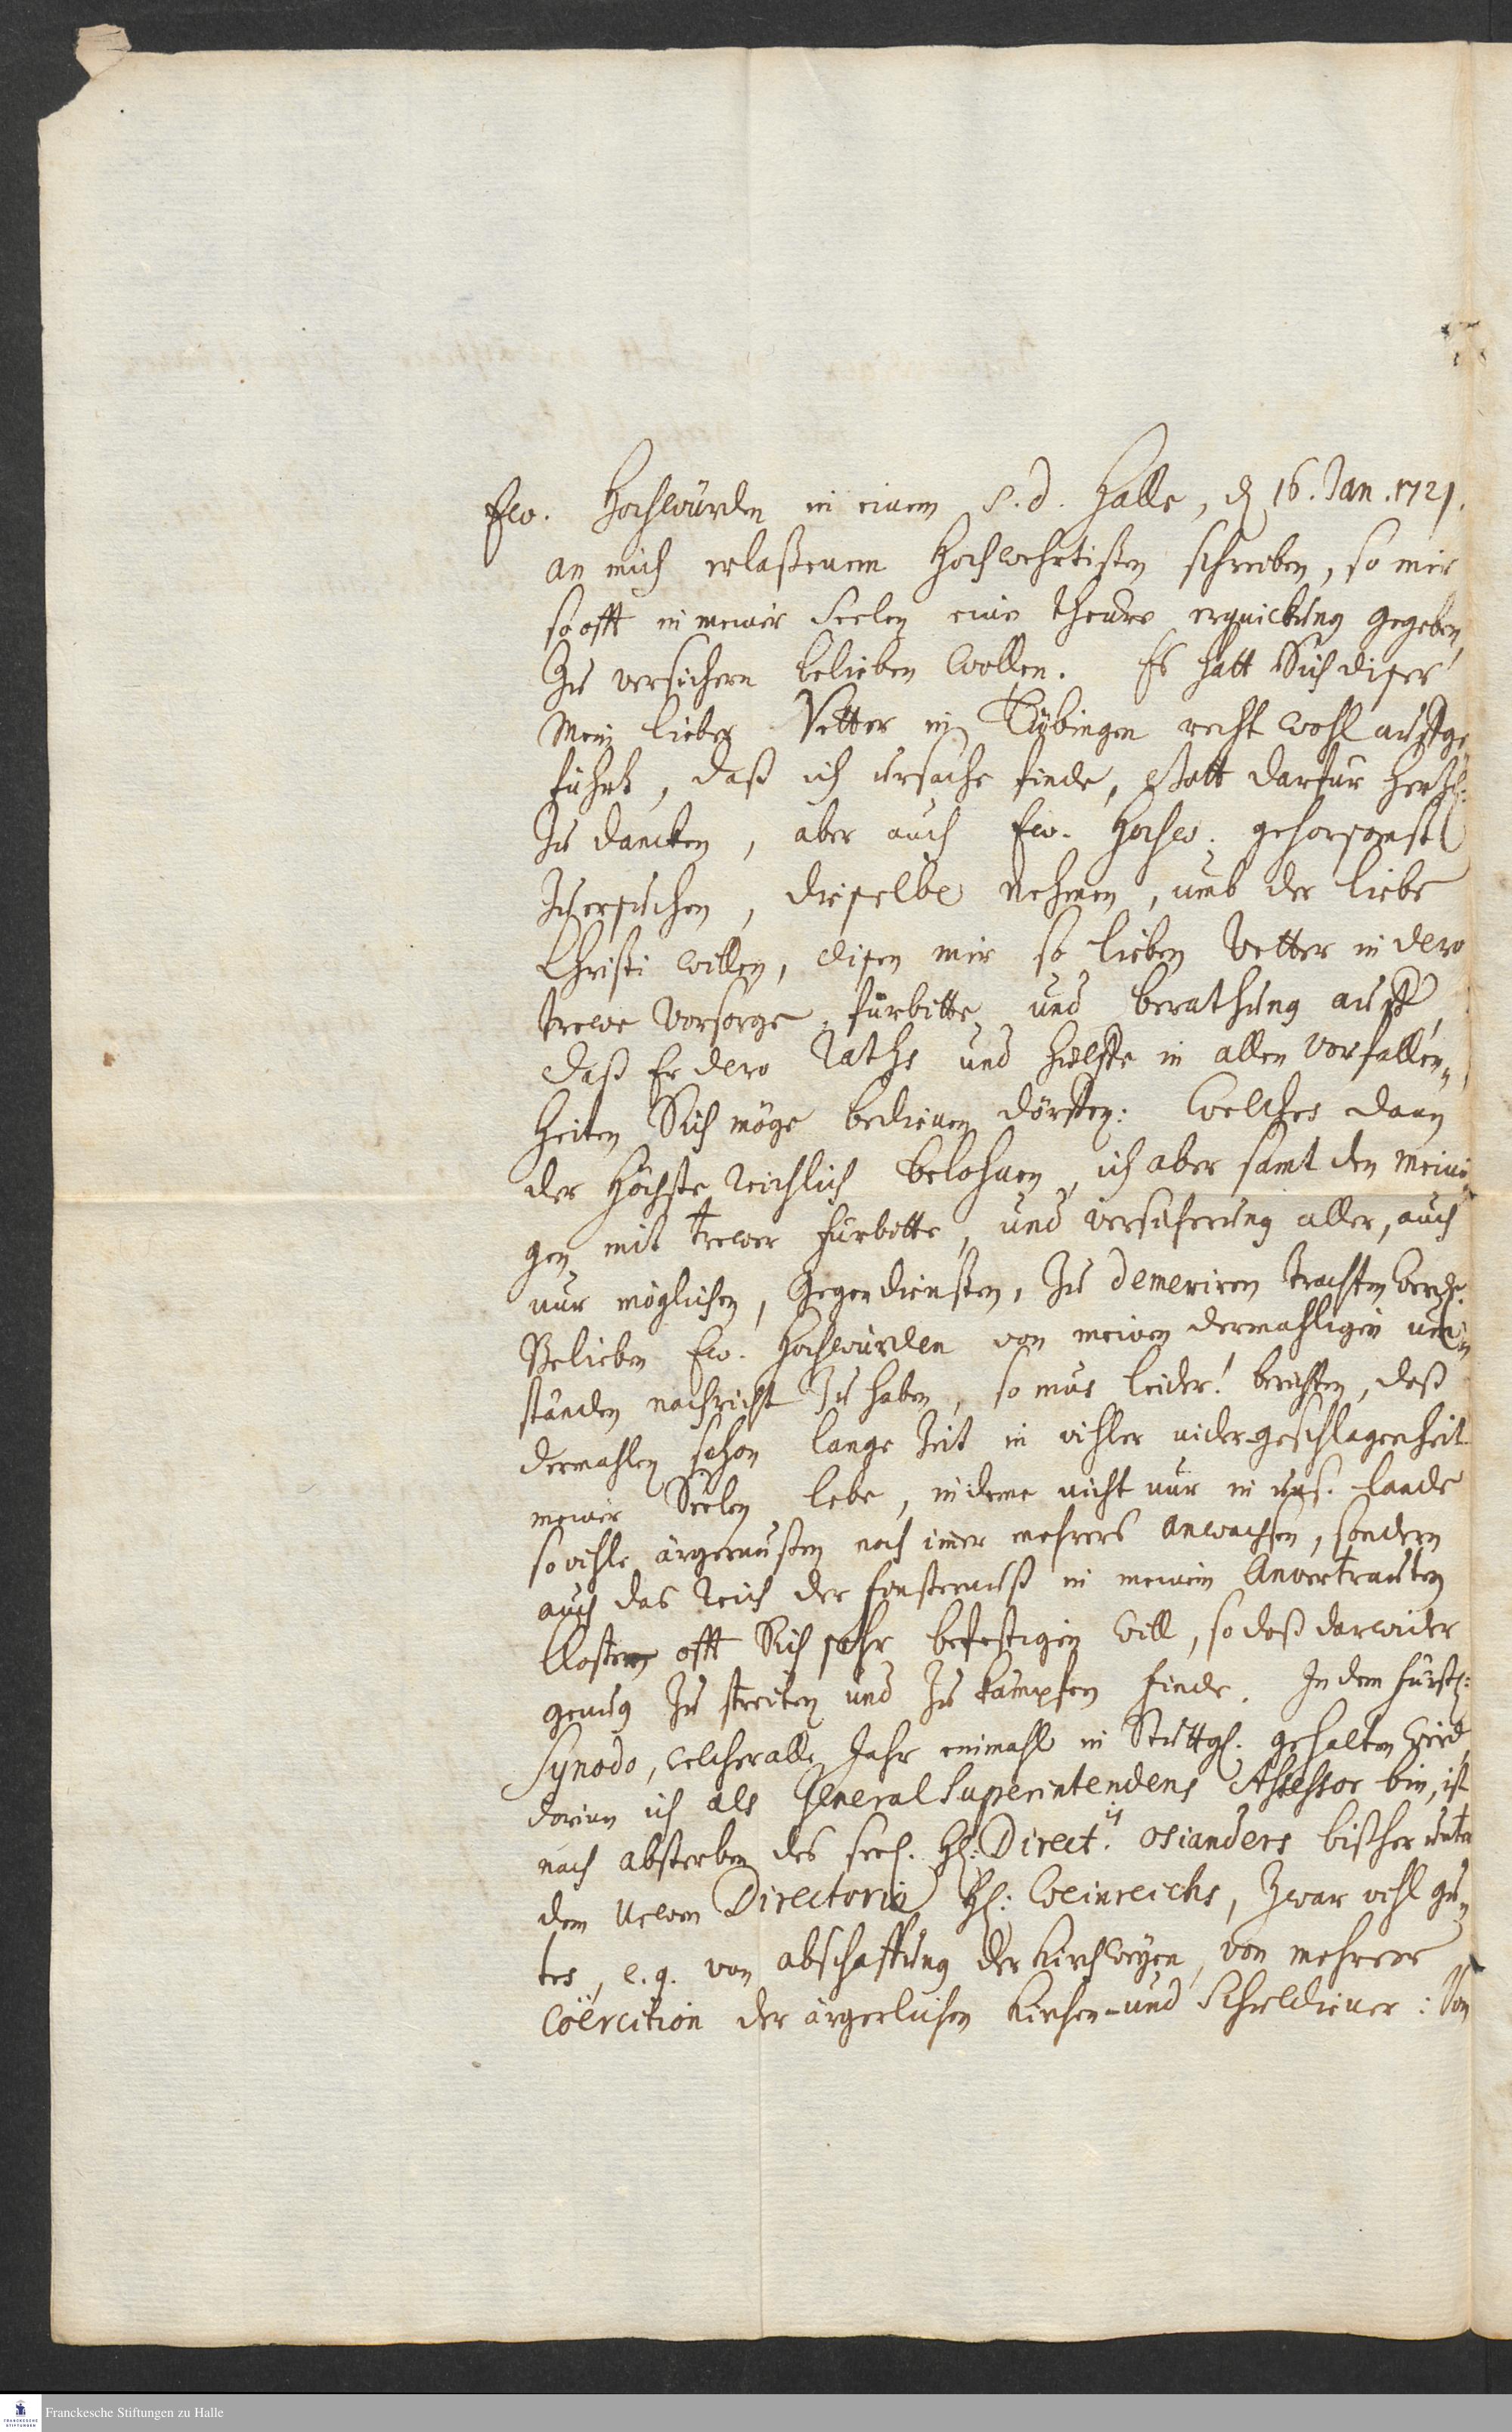 Ew. Hochwürden in einem s. d. Halle, d. 16. Jan. 1721.
an mich erlaßenem Hochwehrtisten schreiben, so mir
so offt in meiner Seelen eine theure erquickung gegeben,
zu versichern belieben wollen. Es hatt Sich diser
Mein lieber Vetter in Tübingen recht wohl auffge,,
führt, daß ich ursache finde, Gott darfür hertzl:
zu dancken, aber auch Ew. Hochw. gehorsamst
zu ersuchen, dieselbe nehmen, umb der liebe
Christi willen, disen mir so lieben Vetter in dero
trewe Vorsorge, fürbitte, und berathung auff,
daß Er dero Raths und Hülffe in allen Vorfallen,,
heiten Sich möge bedienen dörffen: Welches dann
der Höchste reichlich belohnen, ich aber samt den meini,,
gen mit trewer fürbitte, und versicherung aller, auch
nur möglichen, Gegendiensten, zu demeriren trachten werde.
Belieben Ew. Hochwürden von meinen dermahligen um,,
ständen nachricht zu haben, so mus leider! berichten, daß
dermahlen schon lange Zeit in vihler nider-geschlagenheit
meiner Seelen lebe, indeme nicht nur in uns. Lande
so vihle ärgernußen noch immer mehrers anwachsen, sondern
auch das Reich der finsternuß in meinem Anvertrauten
Closter offt Sich sehr befestigen will, so daß darwider
genug zu streiten und zu kämpfen finde. In dem fürstl:
Synodo, welcher alle Jahr einmahl in Stuttg. gehalten wird,
darinn ich als General Superintendens Assessor bin, ist
nach absterben des seel. H: Direct. is Osianders bißher unter
dem newen Directorio H: Weinreichs, zwar vihl gu,,
tes, e. g. von abschaffung der Kirchweyen, von mehrerer
Coërcition der ärgerlichen Kirchen- und Schuldiener: Von
Franckesche Stiftungen zu Halle